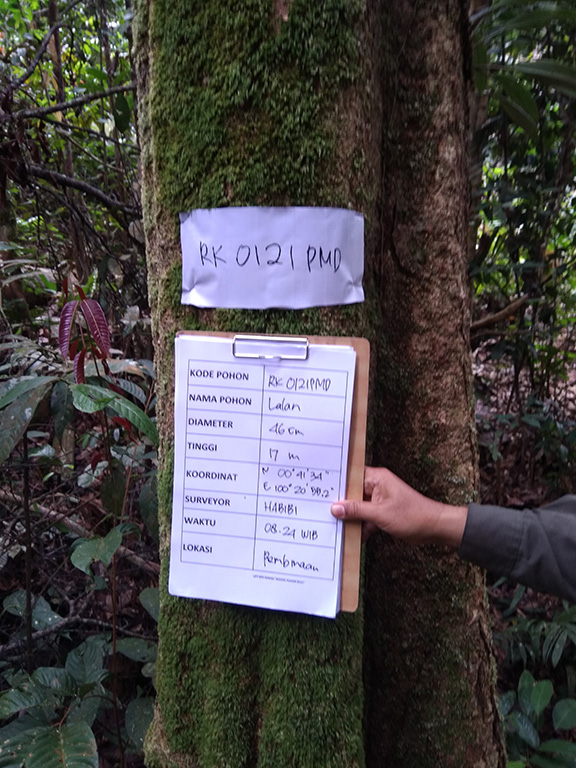 RK 0121 PMD
KODE POHON RK 0121PMD
NAMA POHON Lalan
DIAMETER 46 cm
TINGGI 17 m
KOORDINAT N 00°41'34"
E 100°20'
SURVEYOR HABIBI
WAKTU 08.24 WIB
LOKASI